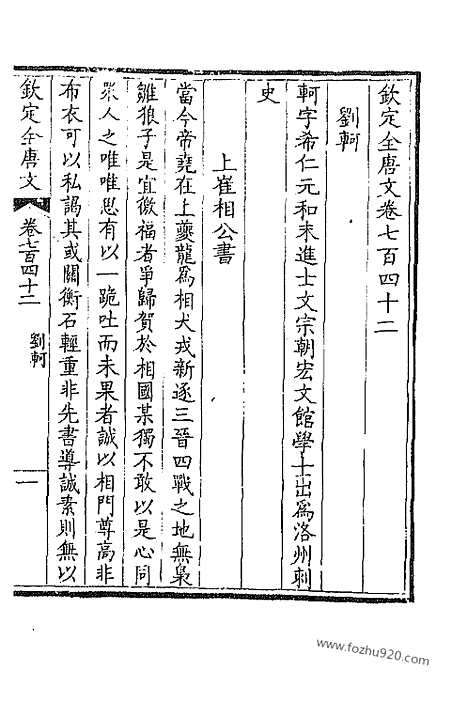 欽定全唐文卷七百四十二
劉軻
軻字希仁元和末進士文宗朝宏文館學士出爲洛州刺
史
上崔相公書
當今帝堯在上夔龍爲相犬戎新逐三晉四戰之地無梟
雛狼子是宜徼福者爭歸賀於相國某獨不敢以是心同
眾人之唯唯思有以一跪吐而未果者誠以相門尊高非
布衣可以私謁其或關衡石輕重非先書導誠素則無以
欽定全唐文
卷七百四十二
劉軻
一
www.fozhu920.com